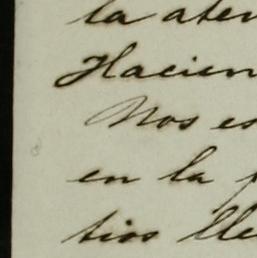 la aten
Hacien
Nos es
en la p
tios lle